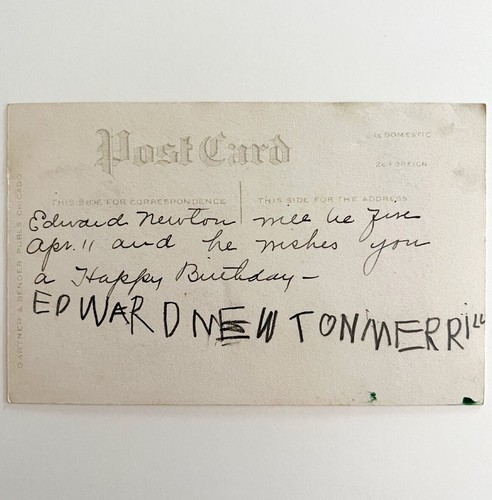 Post Card
1c DOMESTIC
2c FOREIGN
THIS SIDE FOR CORRESPONDENCE
THIS SIDE FOR THE ADDRESS
GARTNER & BENDER PUBLS. CHICAGO
Edward Newton will be five
Apr. 11 and he wishes you
a Happy Birthday —
EDWARD NEWTON MERRiLL